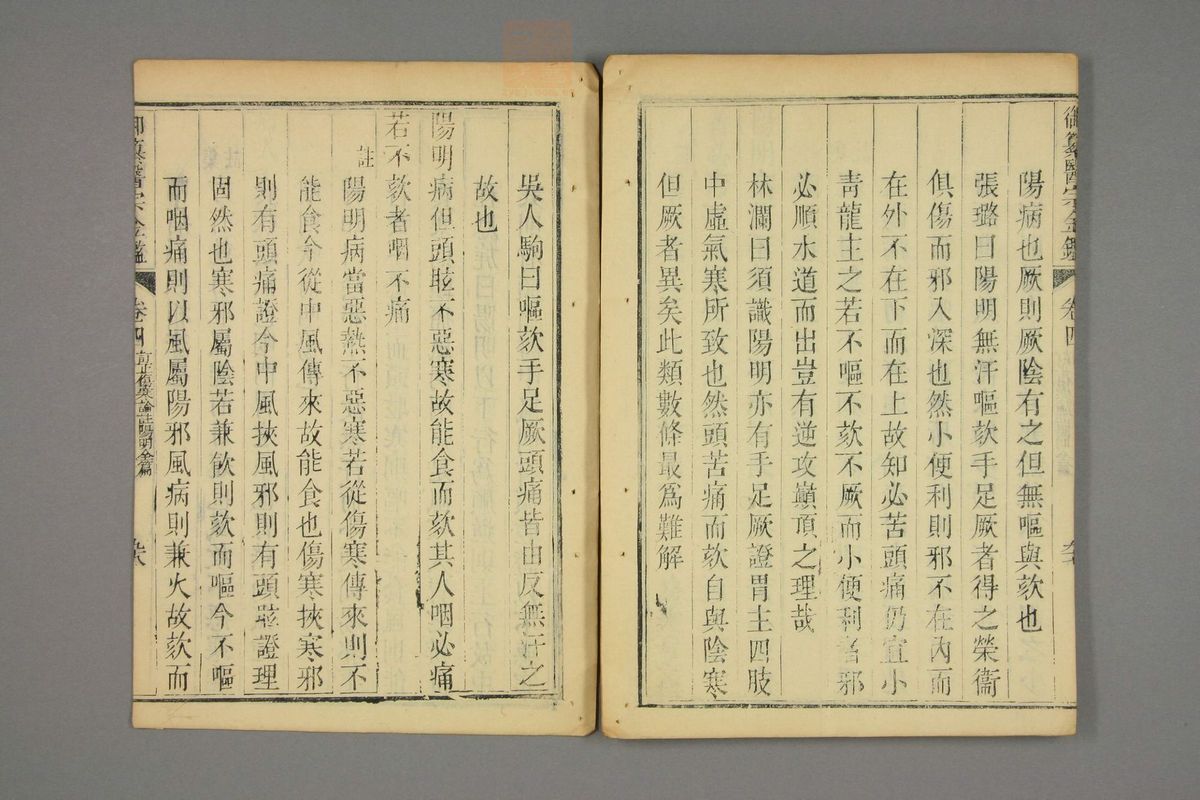 御纂醫宗金鑑 卷四
陽病也厥則厥陰有之但無嘔與欬也
張璐曰陽明無汗嘔欬手足厥者得之榮衞
俱傷而邪入深也然小便利則邪不在內而
在外不在下而在上故知必苦頭痛仍宜小
青龍主之若不嘔不欬不厥而小便利者邪
必順水道而出豈有逆攻巔頂之理哉
林瀾曰須識陽明亦有手足厥證胃主四肢
中虛氣寒所致也然頭苦痛而欬自與陰寒
但厥者異矣此類數條最爲難解
吳人駒曰嘔欬手足厥頭痛皆由反無汗之
故也
陽明病但頭眩不惡寒故能食而欬其人咽必痛
若不欬者咽不痛
註
陽明病當惡熱不惡寒若從傷寒傳來則不
能食今從中風傳來故能食也傷寒挾寒邪
則有頭痛證今中風挾風邪則有頭眩證理
固然也寒邪屬陰若兼飮則欬而嘔今不嘔
而咽痛則以風屬陽邪風病則兼火故欬而
御纂醫宗金鑑 卷四 訂正傷寒論註陽明全篇